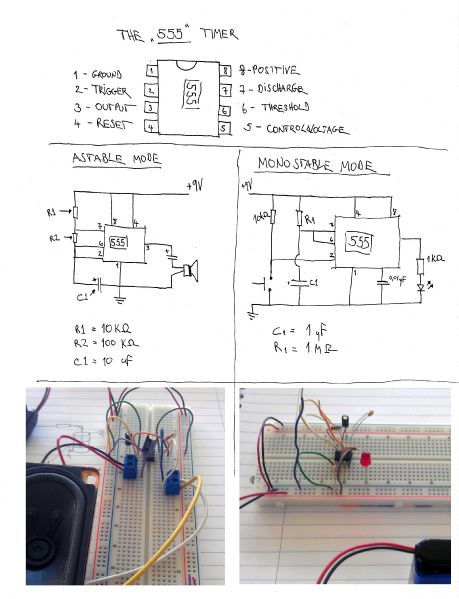 THE "555" TIMER
1 - GROUND
2 - TRIGGER
3 - OUTPUT
4 - RESET
1
2
3
4
555
8
7
6
5
8-POSITIVE
7 - DISCHARGE
6 - THRESHOLD
5 - CONTROLVOLTAGE
ASTABLE MODE
+9V
R1
R2
7
6
2
4
8
555
3
1
+
+
C1
R1 = 10KΩ
R2 = 100 KΩ
C1 = 10 uF
MONOSTABLE MODE
+9V
10kΩ
R1
7
6
2
4
8
555
3
1
+
C1
0,01µF
1KΩ
C1 = 1 µF
R1 = 1 MΩ